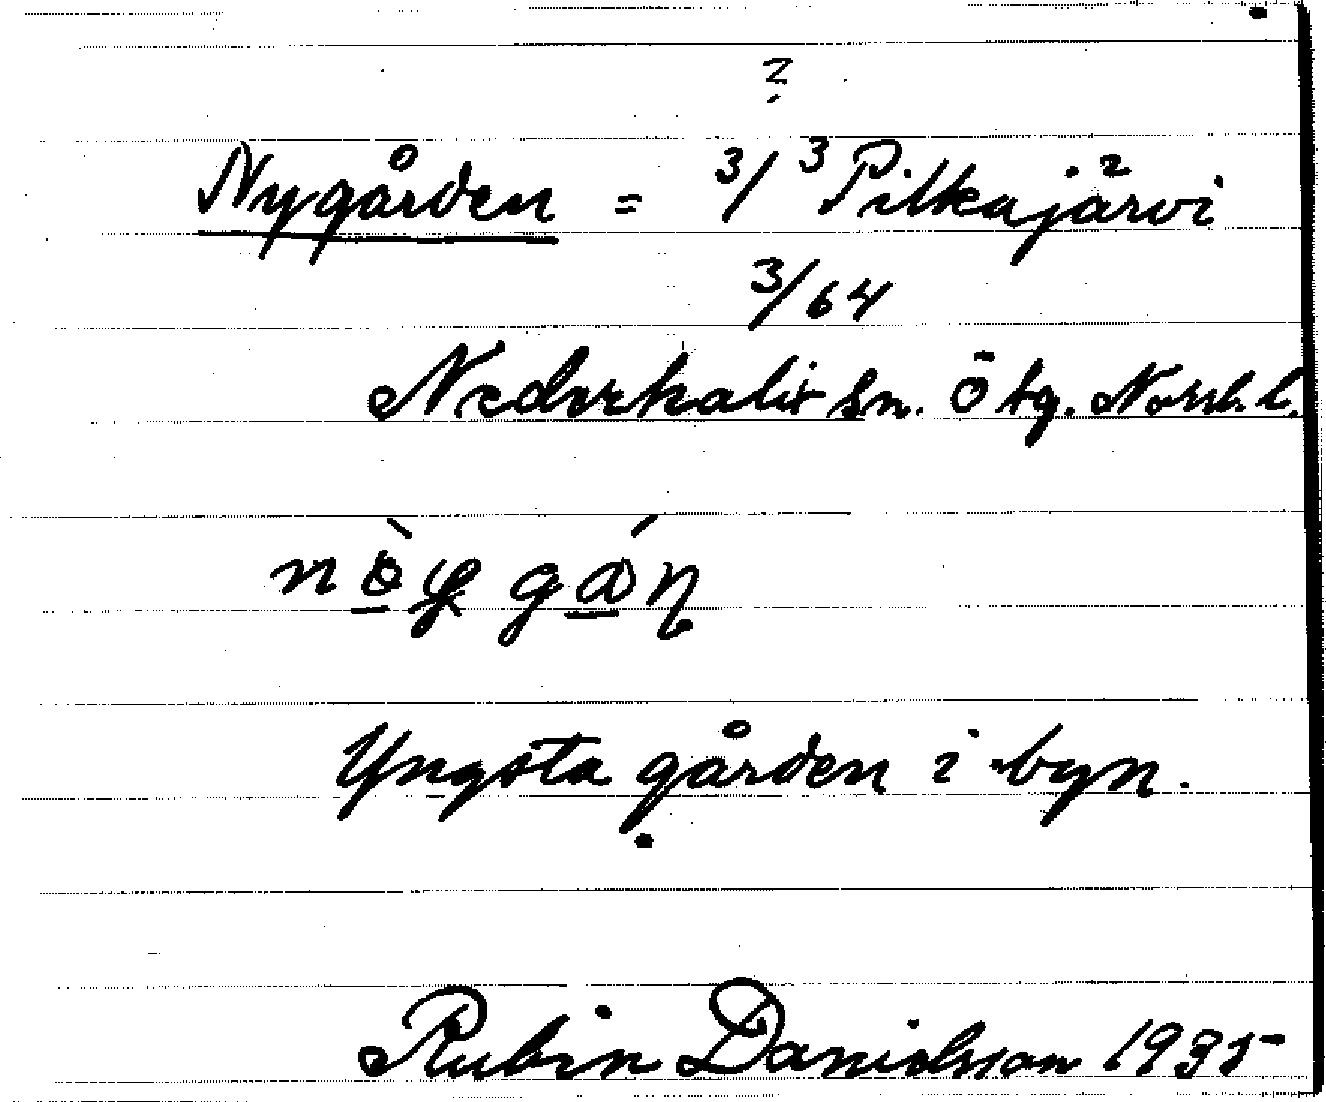 ?
Nygården = 3/3 Pitkäjärvi
3/64
Nederkalix sn. Ö tg. Norrb. l.
Yngsta gården i byn.
Rubin Danielsson 1935